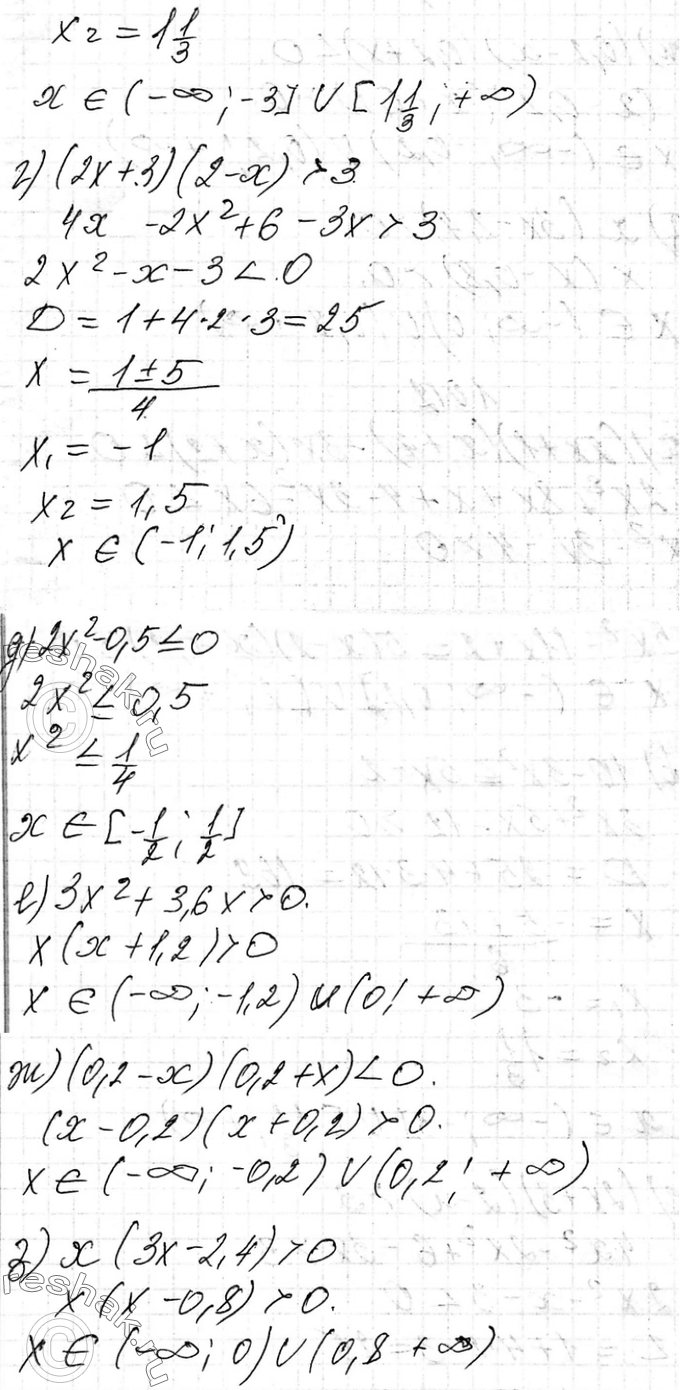 x₂ = 1 1/3
x ∈ (-∞; -3] ∪ [1 1/3; +∞)
г) (2x+3)(2-x) > 3
4x - 2x² + 6 - 3x > 3
2x² - x - 3 < 0
D = 1 + 4·2·3 = 25
x = (1±5)/4
x₁ = -1
x₂ = 1,5
x ∈ (-1; 1,5)
д) 2x² - 0,5 ≤ 0
2x² ≤ 0,5
x² ≤ 1/4
x ∈ [-1/2; 1/2]
е) 3x² + 3,6x > 0.
x(x + 1,2) > 0
x ∈ (-∞; -1,2) ∪ (0; +∞)
ж) (0,2 - x)(0,2 + x) < 0.
(x - 0,2)(x + 0,2) > 0.
x ∈ (-∞; -0,2) ∪ (0,2; +∞)
з) x(3x - 2,4) > 0
x(x - 0,8) > 0.
x ∈ (-∞; 0) ∪ (0,8 +∞)
reshak.ru
reshak.ru